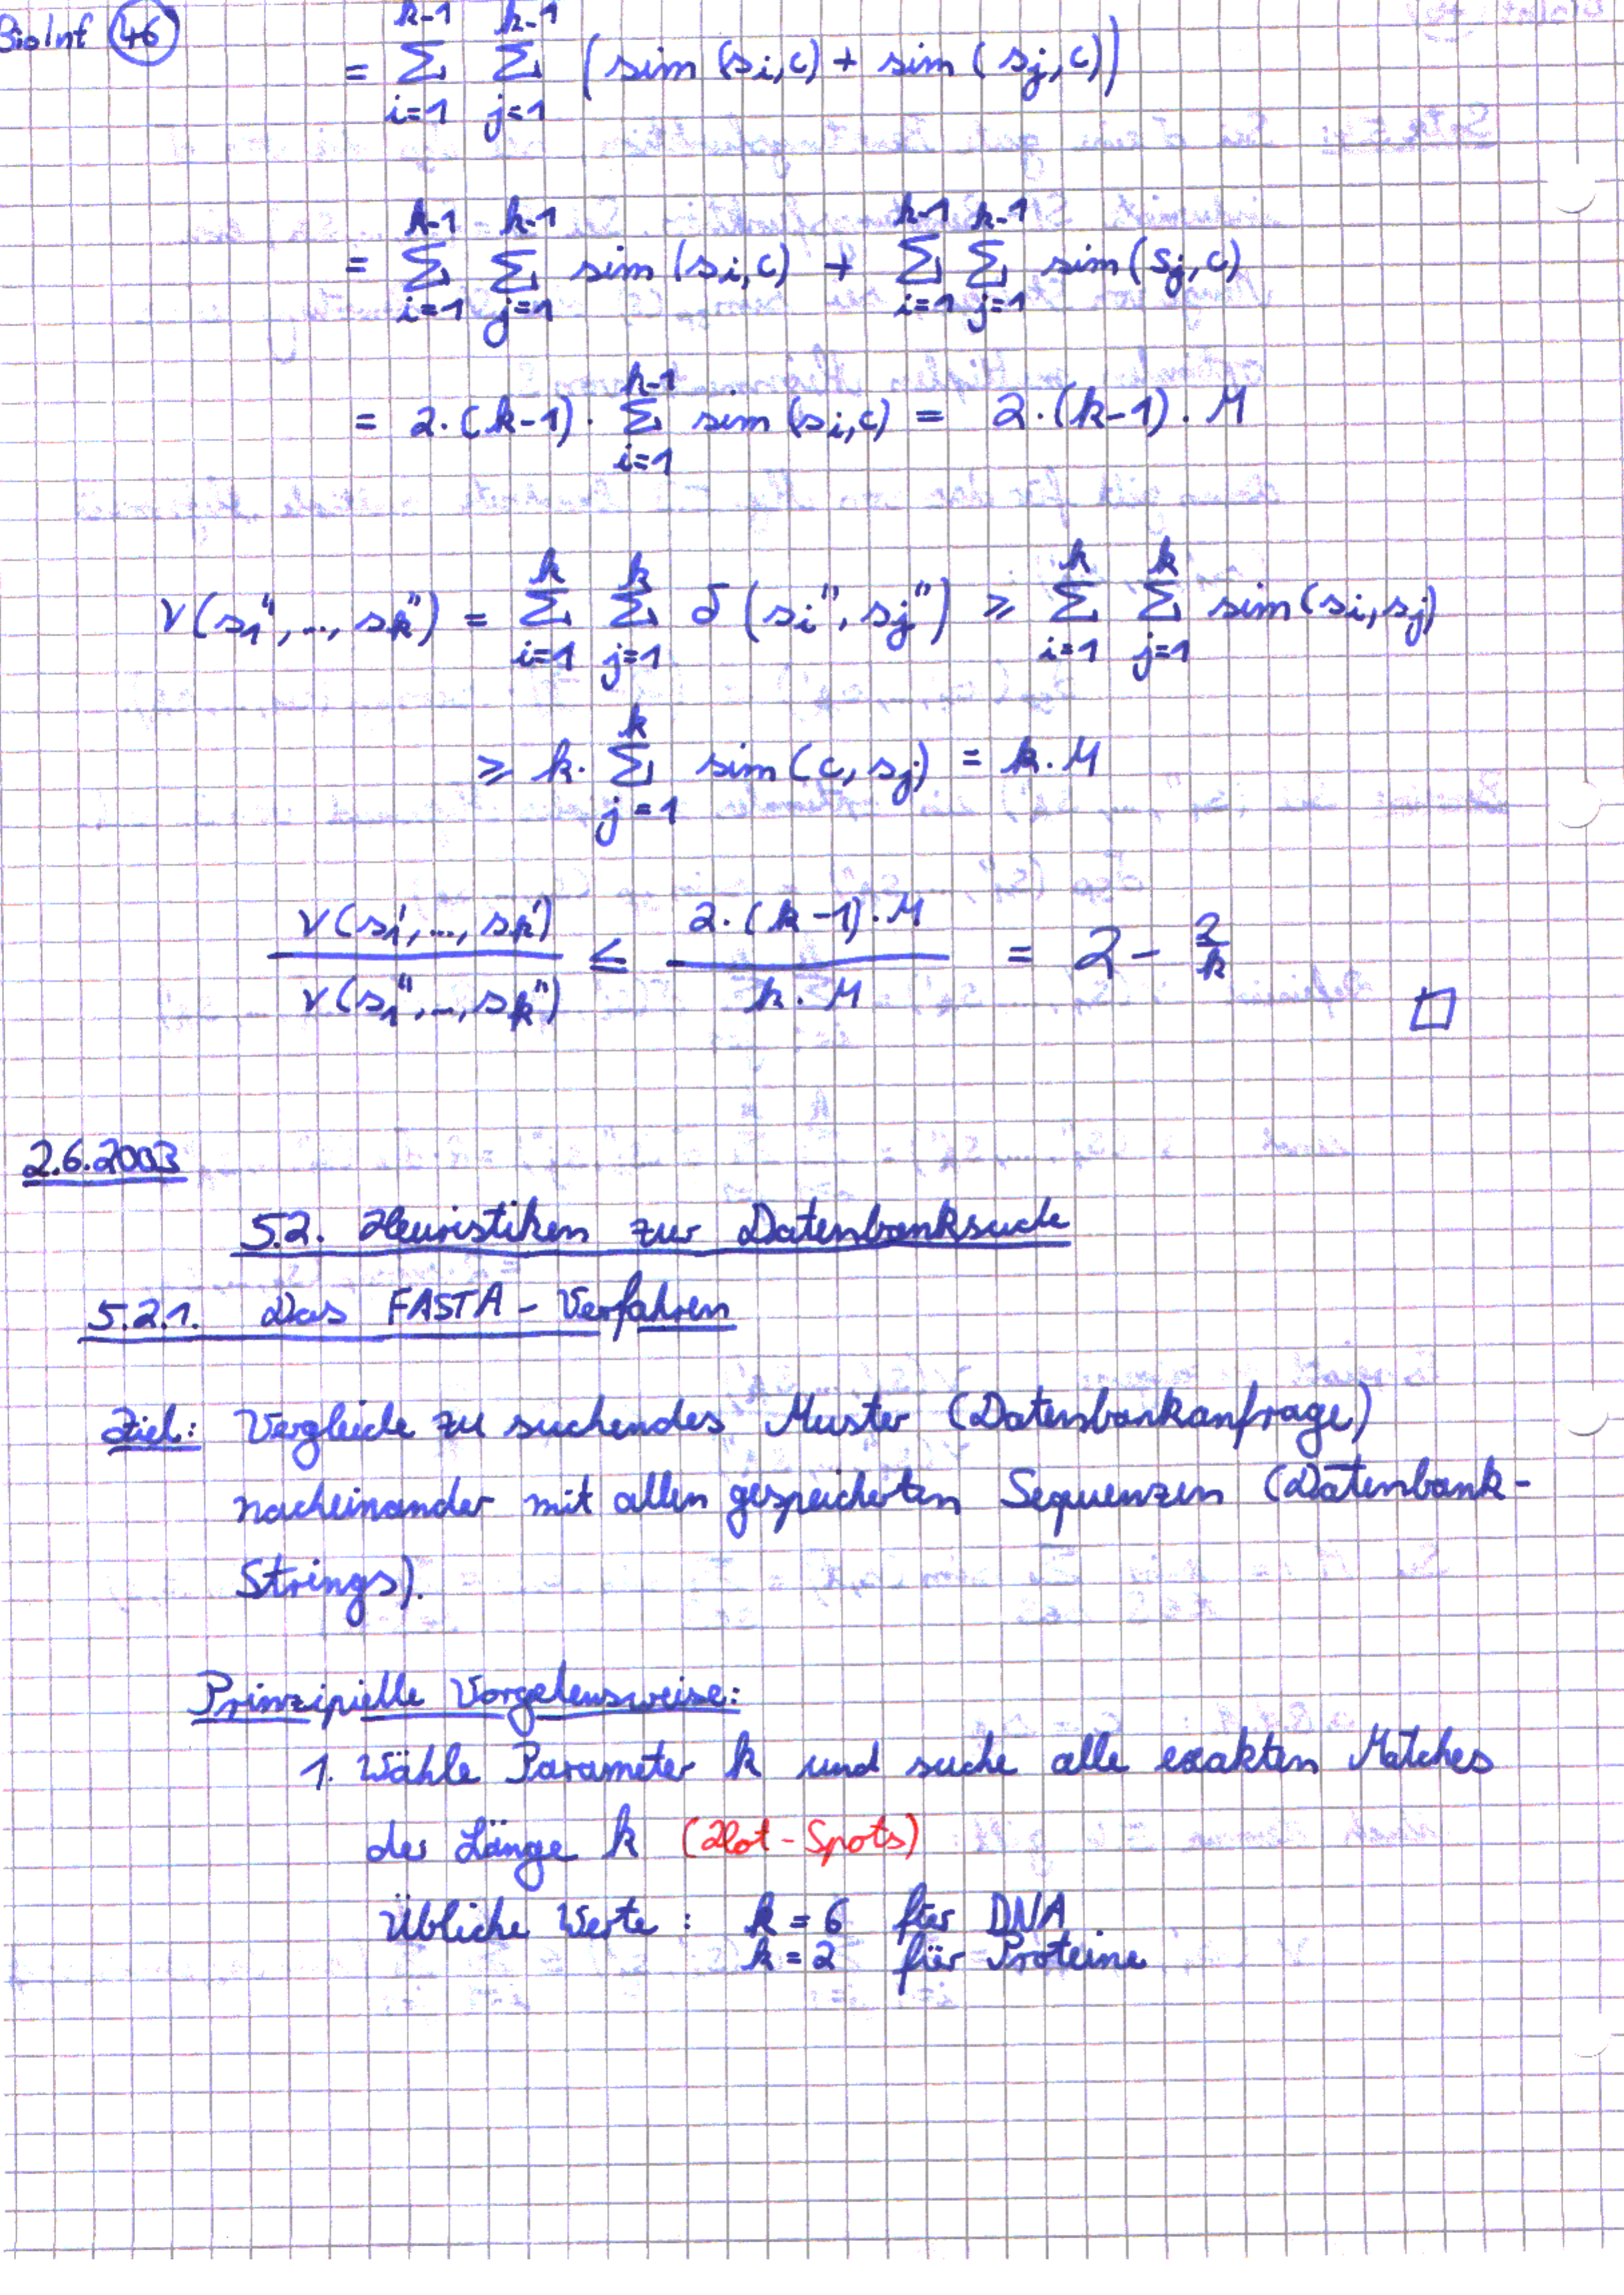 BioInf 46
= \sum_{i=1}^{k-1} \sum_{j=1}^{k-1} (sim (s_i, c) + sim (s_j, c))
= \sum_{i=1}^{k-1} \sum_{j=1}^{k-1} sim (s_i, c) + \sum_{i=1}^{k-1} \sum_{j=1}^{k-1} sim (s_j, c)
= 2 · (k-1) · \sum_{i=1}^{k-1} sim (s_i, c) = 2 · (k-1) · M
v(s_1'', ..., s_k'') = \sum_{i=1}^{k} \sum_{j=1}^{k} δ (s_i'', s_j'') ≥ \sum_{i=1}^{k} \sum_{j=1}^{k} sim (s_i, s_j)
≥ k · \sum_{j=1}^{k} sim (c, s_j) = k · M
\frac{v(s_1', ..., s_k')}{v(s_1'', ..., s_k'')} ≤ \frac{2 · (k-1) · M}{k · M} = 2 - \frac{2}{k}
□
2.6.2003
5.2. Heuristiken zur Datenbanksuche
5.2.1. Das FASTA-Verfahren
Ziel: Vergleiche zu suchendes Muster (Datenbankanfrage)
nacheinander mit allen gespeicherten Sequenzen (Datenbank-
Strings).
Prinzipielle Vorgehensweise:
1. Wähle Parameter k und suche alle exakten Matches
der Länge k (Hot-Spots)
Übliche Werte: k = 6 für DNA
k = 2 für Proteine